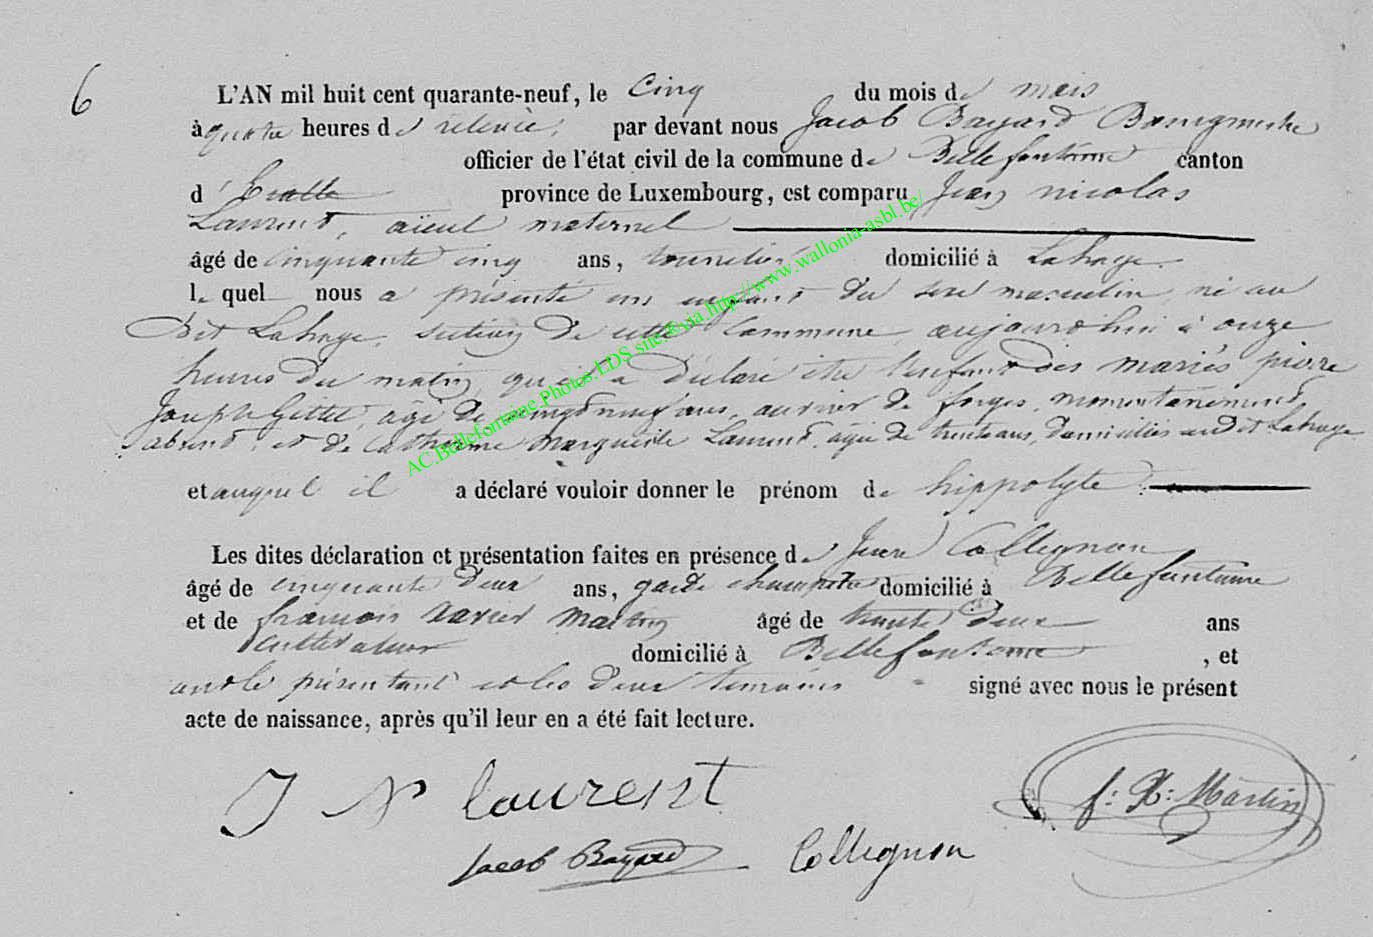 6
L'AN mil huit cent quarante-neuf, le Cinq du mois de mars
à quatre heures de relevée, par devant nous Jacob Bayard Bourgmestre
officier de l'état civil de la commune de Bellefontaine canton
d' Etalle province de Luxembourg, est comparu Jean nicolas
Laurent, aïeul maternel
âgé de cinquante cinq ans, domicilié à Lahage
le quel nous a présenté un enfant du sexe masculin né au
dit Lahage, section de cette Commune aujourd'hui à onze
heures du matin, qu'il a déclaré être l'enfant des mariés pierre
Joseph âgé de vingt neuf ans, ouvrier de forges, momentanément
absent, et de Catherine Marguerite Laurent, agée de trente ans, domiciliés audit Lahage
et auquel il a déclaré vouloir donner le prénom de hippolyte
Les dites déclaration et présentation faites en présence de Jean Collignon
âgé de cinquante deux ans, garde champêtre domicilié à Bellefontaine
et de francois Xavier Martin âgé de trente deux ans
cultivateur domicilié à Bellefontaine, et
ont le présentant et les deux témoins signé avec nous le présent
acte de naissance, après qu'il leur en a été fait lecture.
J N Laurent
f: X: Martin
Jacob Bayard Collignon
AC.Bellefontaine.Photos.LDS site.®via.http://www.wallonia-asbl.be/